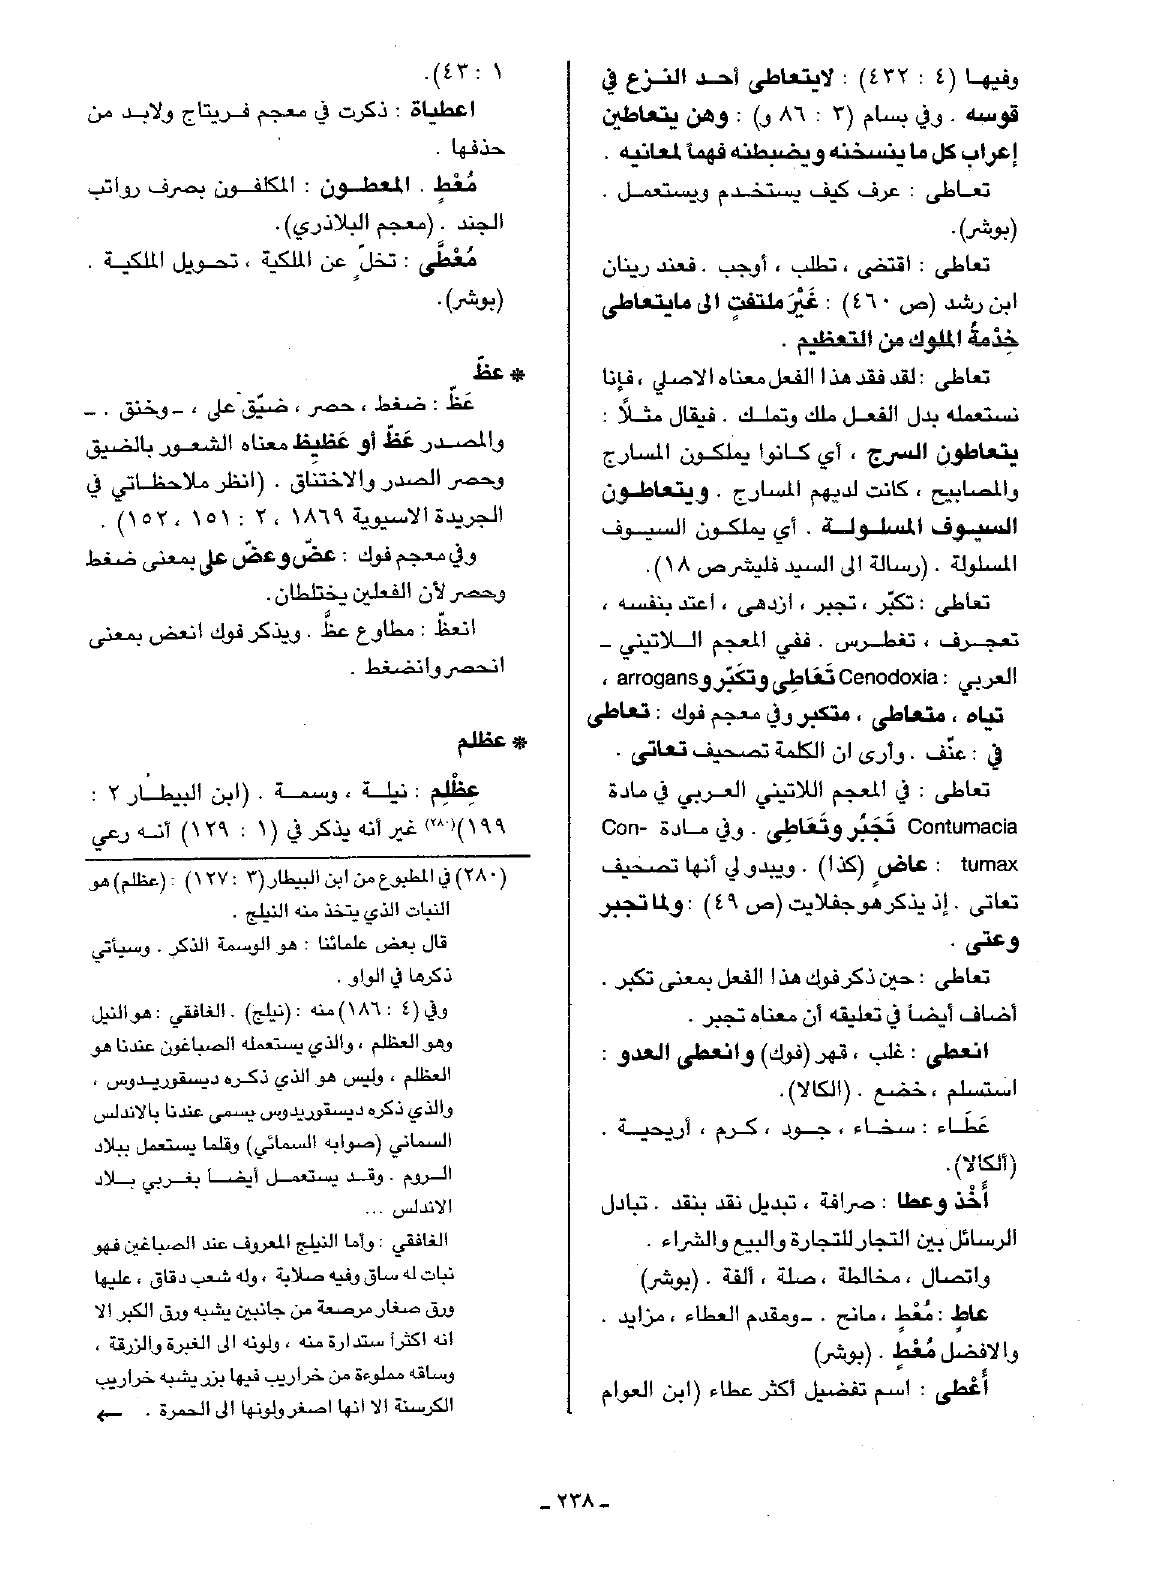 وفيها (٤ : ٤٣٢) : لايتعاطى أحد النزع في
قوسه . وفي بسام (٣ : ٨٦ و) : وهن يتعاطين
إعراب كل ما ينسخنه ويضبطنه فهماً لمعانيه .
تعاطى : عرف كيف يستخدم ويستعمل .
(بوشر).
تعاطى : اقتضى ، تطلب ، أوجب . فعند رينان
ابن رشد (ص ٤٦٠) : غَيْرَ ملتفتٍ الى مايتعاطى
خِدْمةُ الملوك من التعظيم .
تعاطى : لقد فقد هذا الفعل معناه الاصلي ، فإنا
نستعمله بدل الفعل ملك وتملك . فيقال مثلاً :
يتعاطون السرج ، أي كانوا يملكون المسارج
والمصابيح ، كانت لديهم المسارج . ويتعاطون
السيوف المسلولة . أي يملكون السيوف
المسلولة . (رسالة الى السيد فليشر ص ١٨).
تعاطى : تكبّر ، تجبر ، ازدهى ، اعتد بنفسه ،
تعجرف ، تغطرس . ففي المعجم اللاتيني ـ
العربي : Cenodoxia تَعَاطِي وتكَبّر و arrogans ،
تياه ، متعاطي ، متكبر وفي معجم فوك : تعاطى
في : عنّف . وأرى ان الكلمة تصحيف تعاتى .
تعاطى : في المعجم اللاتيني العربي في مادة
Contumacia تَجَبُّر وتَعَاطِي . وفي مادة Con-
tumax : عاصٍ (كذا) . ويبدو لي أنها تصحيف
تعاتى . إذ يذكر هو جفلايت (ص ٤٩) : ولما تجبر
وعتى .
تعاطى : حين ذكر فوك هذا الفعل بمعنى تكبر .
أضاف أيضاً في تعليقه أن معناه تجبر .
انعطى : غلب ، قهر (فوك) وانعطى العدو :
استسلم ، خضع . (الكالا).
عَطَاء : سخاء ، جود ، كرم ، أريحية .
(ألكالا).
أَخْذ وعطا : صرافة ، تبديل نقد بنقد . تبادل
الرسائل بين التجار للتجارة والبيع والشراء .
واتصال ، مخالطة ، صلة ، ألفة . (بوشر)
عاطٍ : مُعْطٍ ، مانح . ـ ومقدم العطاء ، مزايد .
والافضل مُعْطٍ . (بوشر)
أَعْطى : اسم تفضيل أكثر عطاء (ابن العوام
١ : ٤٣).
اعطياة : ذكرت في معجم فريتاج ولابد من
حذفها .
مُعْطٍ . المعطون : المكلفون بصرف رواتب
الجند . (معجم البلاذري).
مُعْطًى : تخلٍّ عن الملكية ، تحويل الملكية .
(بوشر).
* عظّ
عَظّ : ضغط ، حصر ، ضيّق على ، ـ وخنق . ـ
والمصدر عَظّ أو عَظِيظ معناه الشعور بالضيق
وحصر الصدر والاختناق . (انظر ملاحظاتي في
الجريدة الاسيوية ١٨٦٩ ، ٢ : ١٥١ ، ١٥٢) .
وفي معجم فوك : عضّ وعضّ على بمعنى ضغط
وحصر لأن الفعلين يختلطان.
انعظّ : مطاوع عظَّ . ويذكر فوك انعض بمعنى
انحصر وانضغط .
* عظلم
عِظْلِم : نيلة ، وسمة . (ابن البيطار ٢ :
١٩٩)(٢٨٠) غير أنه يذكر في (١ : ١٢٩) أنه رعي
(٢٨٠) في المطبوع من ابن البيطار (٣ : ١٢٧) : (عظلم) هو
النبات الذي يتخذ منه النيلج .
قال بعض علمائنا : هو الوسمة الذكر . وسيأتي
ذكرها في الواو .
وفي (٤ : ١٨٦) منه : (نيلج) . الغافقي : هو النيل
وهو العظلم ، والذي يستعمله الصباغون عندنا هو
العظلم ، وليس هو الذي ذكره ديسقوريدوس ،
والذي ذكره ديسقوريدوس يسمى عندنا بالاندلس
السماني (صوابه السمائي) وقلما يستعمل ببلاد
الروم . وقد يستعمل أيضاً بغربي بلاد
الاندلس ...
الغافقي : وأما النيلج المعروف عند الصباغين فهو
نبات له ساق وفيه صلابة ، وله شعب دقاق ، عليها
ورق صغار مرصعة من جانبين يشبه ورق الكبر الا
انه اكثر استدارة منه ، ولونه الى الغبرة والزرقة ،
وساقه مملوءة من خراريب فيها بزر يشبه خراريب
الكرسنة الا انها اصغر ولونها الى الحمرة . ←
ـ ٢٣٨ ـ